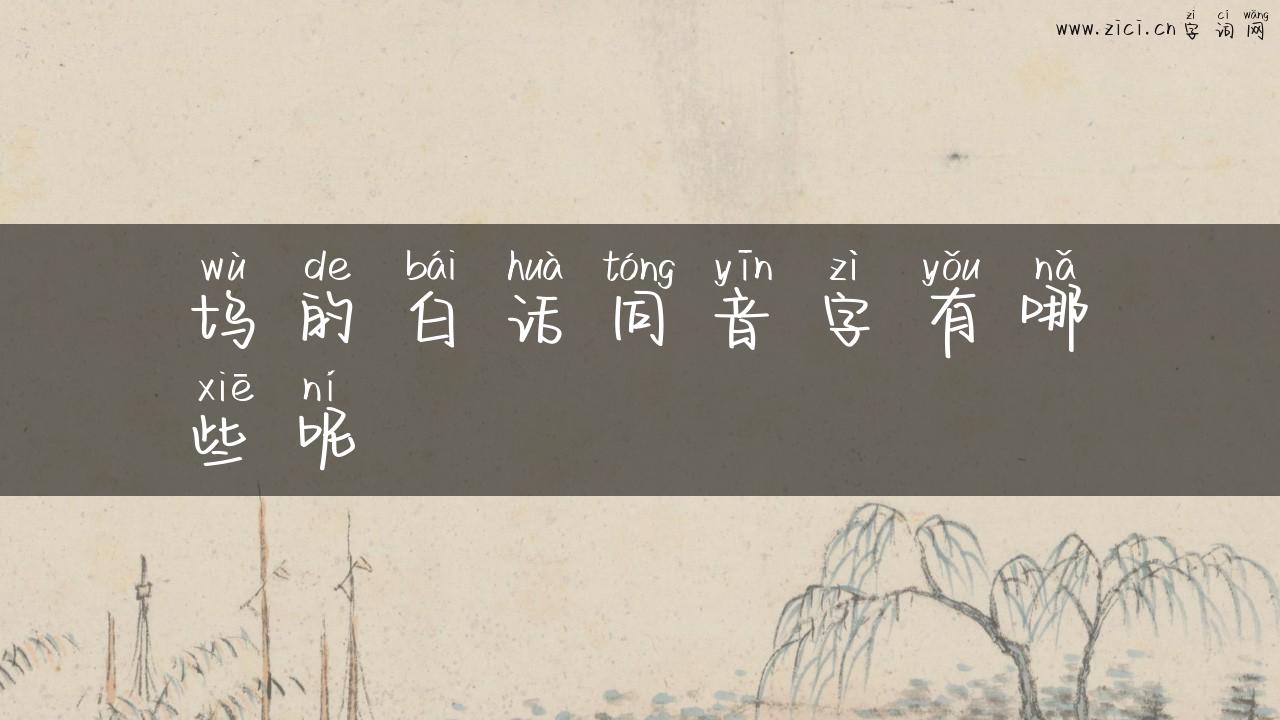 zì cí wǎng
www.zici.cn 字词网
wù de bái huà tóng yīn zì yǒu nǎ
坞的白话同音字有哪
xiē ní
些呢